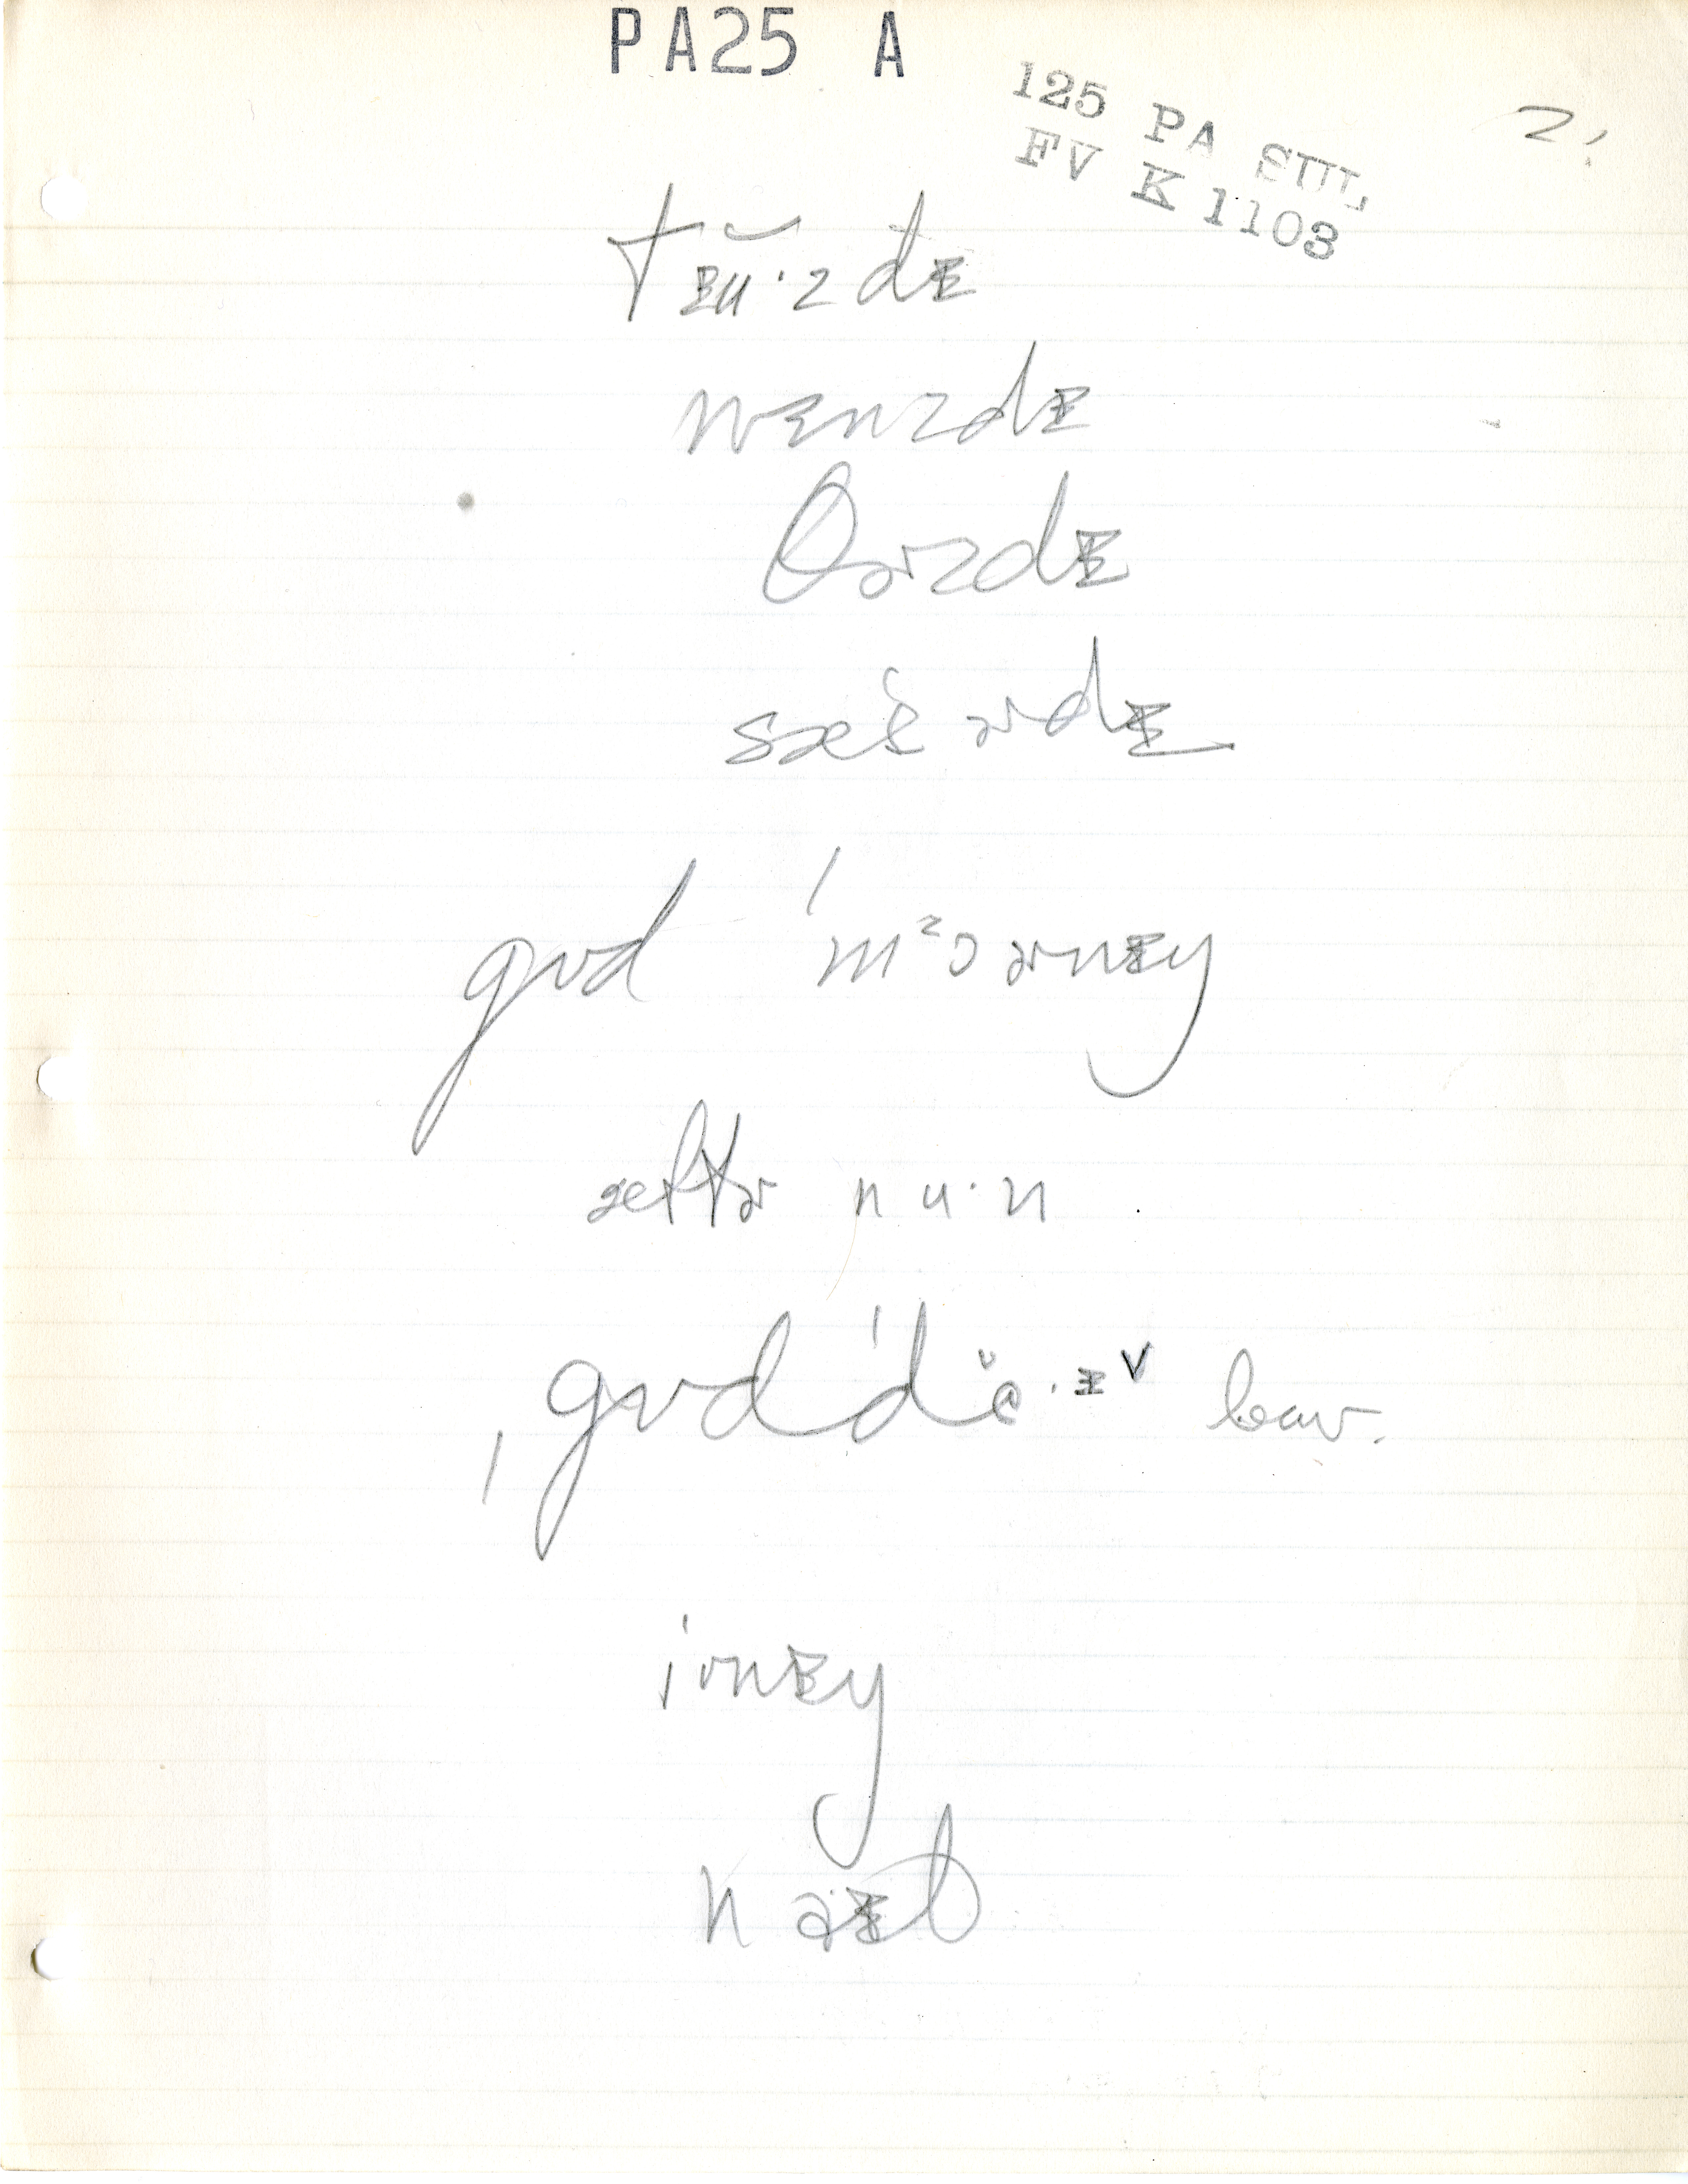 PA25 A
125 PA SUL
FV K 1103
2.
tɪ̆u·zdɪ
wɛnzdɪ
θɚzdɪ
sæt̬ɚdɪ
gʊd ˈmᵓɔɚnɪŋ
æftɚ nu·n
ˌgʊdˈdĕ·ɪ ᵛ leav.
ˈivnɪŋ
naɪt